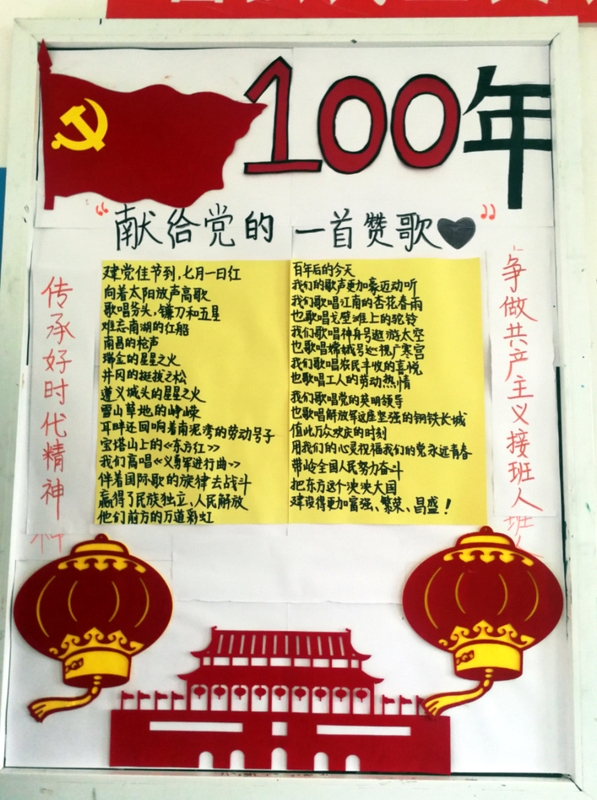 100年
“献给党的 一首赞歌”
传承好时代精神
建党佳节到,七月一日红
向着太阳放声高歌
歌唱斧头,镰刀和五星
难忘南湖的红船
南昌的枪声
瑞金的星星之火
井冈的挺拔之松
遵义城头的星星之火
雪山草地的峥嵘
耳畔还回响着南泥湾的劳动号子
宝塔山上的<<东方红>>
我们高唱<<义勇军进行曲>>
伴着国际歌的旋律去战斗
赢得了民族独立、人民解放
他们前方的万道彩虹
百年后的今天
我们的歌声更加豪迈动听
我们歌唱江南的杏花春雨
也歌唱戈壁滩上的驼铃
我们歌唱神舟号遨游太空
也歌唱嫦娥号巡视广寒宫
我们歌唱农民丰收的喜悦
也歌唱工人的劳动热情
我们歌唱党的英明领导
也歌唱解放军这座坚强的钢铁长城
值此万众欢庆的时刻
用我们的心灵祝福我们的党永远青春
带领全国人民努力奋斗
把东方这个泱泱大国
建设得更加富强、繁荣、昌盛!
争做共产主义接班人